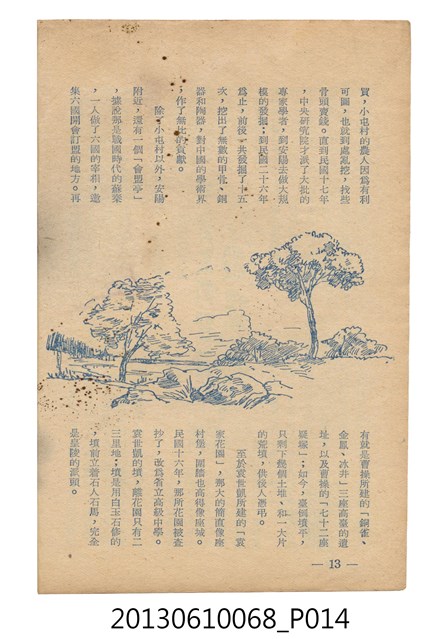 買，小屯村的農人因為有利
可圖，也就到處亂挖，找些
骨頭賣錢。直到民國十七年
，中央研究院才派了大批的
專家學者，到安陽去做大規
模的發掘；到民國二十六年
為止，前後一共發掘了十五
次，挖出了無數的甲骨、銅
器和陶器，對中國的學術界
，作了無比的貢獻。
除了小屯村以外，安陽
附近，還有一個「會盟亭」
，據說那是戰國時代的蘇秦
，一人做了六國的宰相，邀
集六國開會訂盟的地方。再
有就是曹操所建的「銅雀、
金鳳、冰井」三座高臺的遺
址，以及曹操的「七十二座
疑塚」；如今，臺傾墳平，
只剩下幾個土堆、和一大片
的空墳，供後人憑弔。
至於袁世凱所建的「袁
家花園」，那大的簡直像座
村堡，圍牆也高得像座城。
民國十六年，那所花園被查
抄了，改為省立高級中學。
袁世凱的墳，離花園只有二
三里地；墳是用白玉石修的
，墳前立着石人石馬，完全
是皇陵的派頭。
— 13 —
20130610068_P014